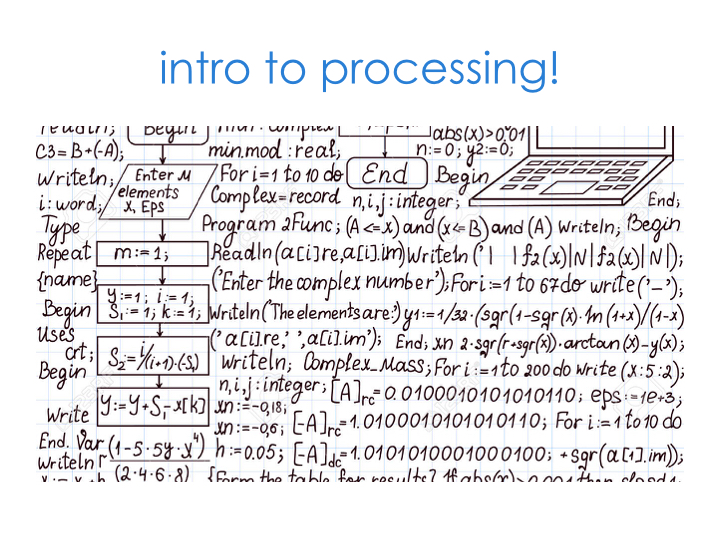 intro to processing!
Begin
abs(x)>0.01
C3=B+(-A);
min.mod:real;
n:=0; y2:=0;
Writeln;
Enter M
elements
x, Eps
For i=1 to 10 do
End
Begin
i:word;
Complex=record
n,i,j:integer;
End;
Type
Program 2Func; (A<=x)and(x<=B)and(A) Writeln; Begin
Repeat
m:=1;
Readln(a[i]re,a[i].im)Writeln('| | f2(x)|N|f2(x)|N|);
{name}
('Enter the complex number');For i:=1 to 67do write('_');
Begin
y:=1; i:=1;
S1:=1; k:=1;
Writeln('The elements are:')y1:=1/32·(sgr(1-sgr(x)·ln(1+x)/(1-x)
Uses
crt;
S2=i/(i+1)·(-S1)
('a[i].re,' ',a[i].im'); End; xn 2·sgr(r+sgr(x))·arctan(x)-y(x);
Begin
Writeln; Complex_Mass;For i:=1 to 200 do write(x:5:2);
n,i,j:integer;
[A]rc=0.0100010101010110; eps:=1e+3;
Write
Y:=Y+S1-x[k]
xn:=-0,18;
xn:=-0,6;
[A]rc=1.0100010101010110; For i:=1 to 10 do
End. Var
(1-5·5y·x4)
h:=0.05;
[A]dc=1.0101010001000100; +sgr(a[1].im));
Writeln
(2·4·6·8)
{Form the table for results? If abs(x)>0.001 then